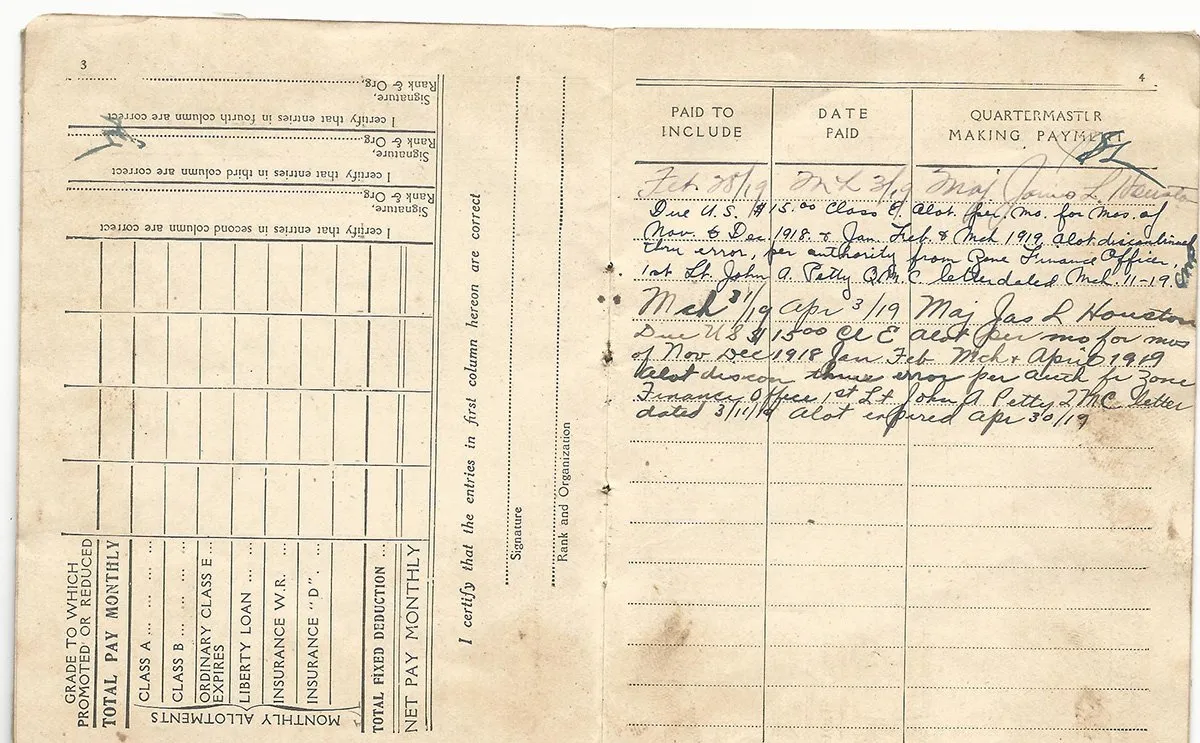 3
I certify that entries in fourth column are correct
Signature,
Rank & Org.
I certify that entries in third column are correct
Signature,
Rank & Org.
I certify that entries in second column are correct
Signature,
Rank & Org.
GRADE TO WHICH
PROMOTED OR REDUCED
TOTAL PAY MONTHLY
MONTHLY ALLOTMENTS
CLASS A ... ... ...
CLASS B ... ... ...
ORDINARY CLASS E ...
EXPIRES
LIBERTY LOAN ... ...
INSURANCE W.R. ...
INSURANCE "D". ...
TOTAL FIXED DEDUCTION ...
NET PAY MONTHLY
I certify that the entries in first column hereon are correct
Signature
Rank and Organization
4
PAID TO INCLUDE
DATE PAID
QUARTERMASTER MAKING PAYMENT
Feb 28/19 Mch 3/19 Maj James L. Houston
Due U.S. $15.00 Class E. Alot. per. mo. for mos. of
Nov. & Dec 1918. & Jan. Feb. & Mch 1919. Alot. discontinued
thru error, per authority from Zone Finance Officer,
1st Lt. John A. Petty Q.M.C letter dated Mch. 11-19.
Mch 31/19 Apr 3/19 Maj Jas L Houston
Due U S $15 00 Cl E alot per mo for mos
of Nov Dec 1918 Jan Feb Mch & April 1919
Alot discon error per auth fr Zone
Finance Office 1st Lt John A Petty QMC letter
dated 3/11/19 Alot expired Apr 30/19